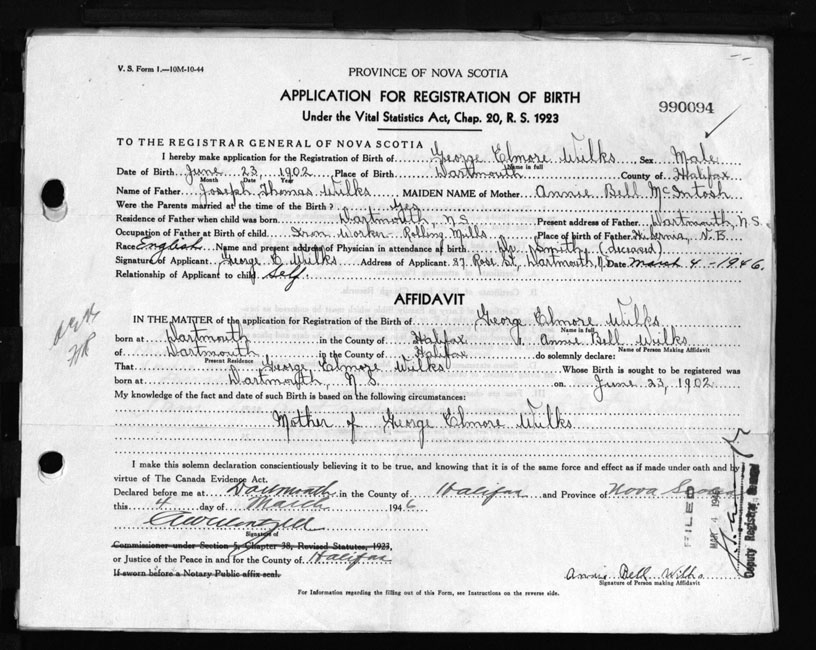 V. S. Form 1.—10M-10-44
PROVINCE OF NOVA SCOTIA
APPLICATION FOR REGISTRATION OF BIRTH
990094
Under the Vital Statistics Act, Chap. 20, R. S. 1923
TO THE REGISTRAR GENERAL OF NOVA SCOTIA
I hereby make application for the Registration of Birth of George Elmore Wilks Sex Male
Name in full
Date of Birth June 23, 1902 Place of Birth Dartmouth County of Halifax
Month Date Year
Name of Father Joseph Thomas Wilks MAIDEN NAME of Mother Annie Bell McIntosh
Were the Parents married at the time of the Birth? Yes
Residence of Father when child was born Dartmouth, N.S. Present address of Father Dartmouth, N.S.
Occupation of Father at Birth of child Iron Worker - Rolling Mills Place of birth of Father Hibernia, N.B.
Race English Name and present address of Physician in attendance at birth Dr. Smith (deceased)
Signature of Applicant George E Wilks Address of Applicant 87 Rose St, Dartmouth, N.S. Date March 4 - 1946.
Relationship of Applicant to child Self
AFFIDAVIT
IN THE MATTER of the application for Registration of the Birth of George Elmore Wilks
Name in full
born at Dartmouth in the County of Halifax Annie Bell Wilks
Name of Person Making Affidavit
of Dartmouth in the County of Halifax do solemnly declare:
Present Residence
That George Elmore Wilks Whose Birth is sought to be registered was
born at Dartmouth, N.S. on June 23, 1902
My knowledge of the fact and date of such Birth is based on the following circumstances:
Mother of George Elmore Wilks
I make this solemn declaration conscientiously believing it to be true, and knowing that it is of the same force and effect as if made under oath and by
virtue of The Canada Evidence Act.
Declared before me at Dartmouth in the County of Halifax and Province of Nova Scotia
this 4 day of March 1946
Signature of
Commissioner under Section 5, Chapter 38, Revised Statutes, 1923,
or Justice of the Peace in and for the County of Halifax
If sworn before a Notary Public affix seal.
Annie Bell Wilks
Signature of Person making Affidavit
For Information regarding the filling out of this Form, see Instructions on the reverse side.
FILED
MAR 4 1946
Deputy Registrar General